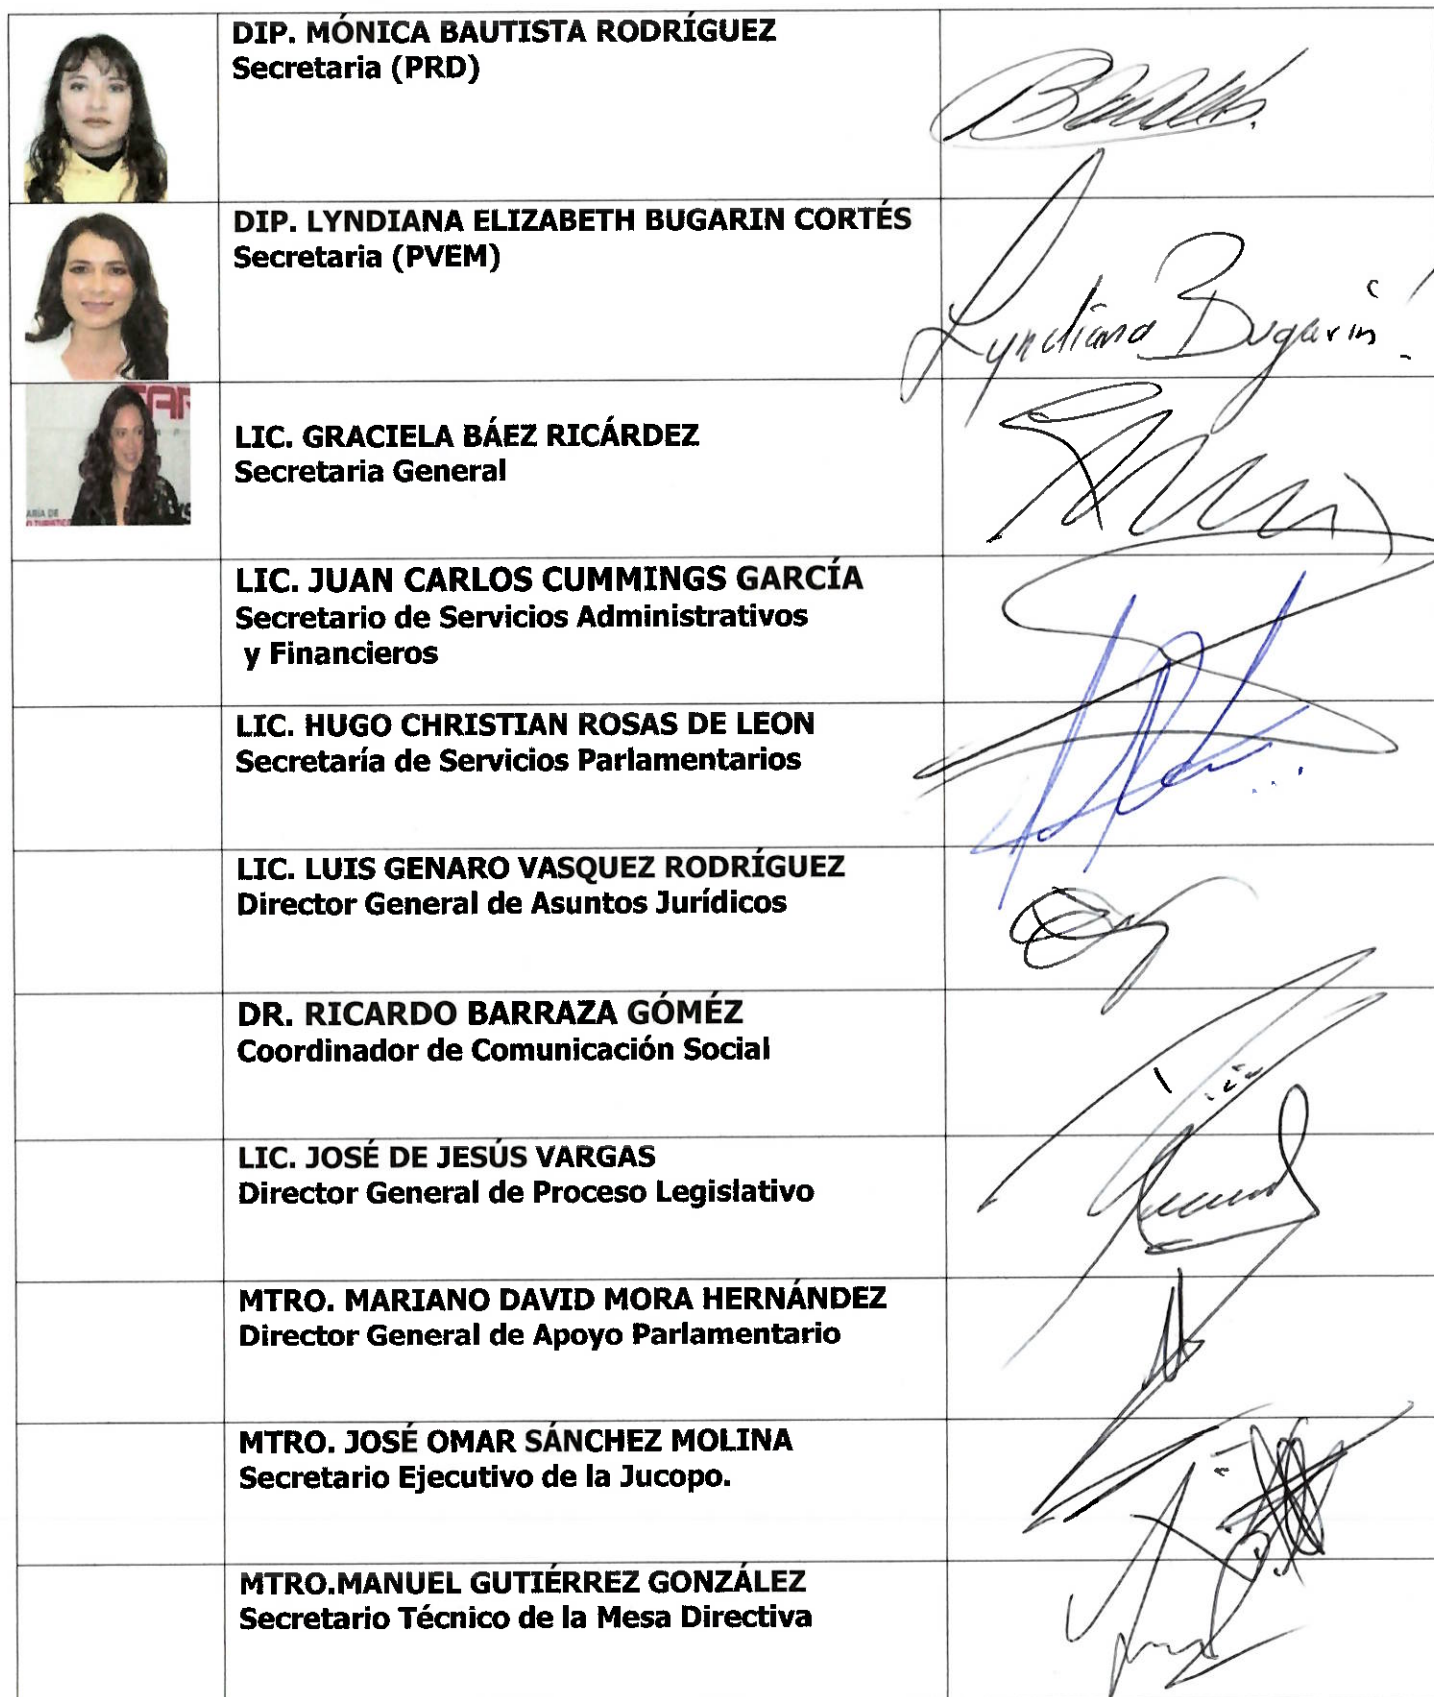 DIP. MÓNICA BAUTISTA RODRÍGUEZ
Secretaria (PRD)
DIP. LYNDIANA ELIZABETH BUGARIN CORTÉS
Secretaria (PVEM)
Lyndiana Bugarin
LIC. GRACIELA BÁEZ RICÁRDEZ
Secretaria General
ARÍA DE
O TURÍSTICO
LIC. JUAN CARLOS CUMMINGS GARCÍA
Secretario de Servicios Administrativos
y Financieros
LIC. HUGO CHRISTIAN ROSAS DE LEON
Secretaría de Servicios Parlamentarios
LIC. LUIS GENARO VASQUEZ RODRÍGUEZ
Director General de Asuntos Jurídicos
DR. RICARDO BARRAZA GÓMÉZ
Coordinador de Comunicación Social
LIC. JOSÉ DE JESÚS VARGAS
Director General de Proceso Legislativo
MTRO. MARIANO DAVID MORA HERNÁNDEZ
Director General de Apoyo Parlamentario
MTRO. JOSÉ OMAR SÁNCHEZ MOLINA
Secretario Ejecutivo de la Jucopo.
MTRO.MANUEL GUTIÉRREZ GONZÁLEZ
Secretario Técnico de la Mesa Directiva